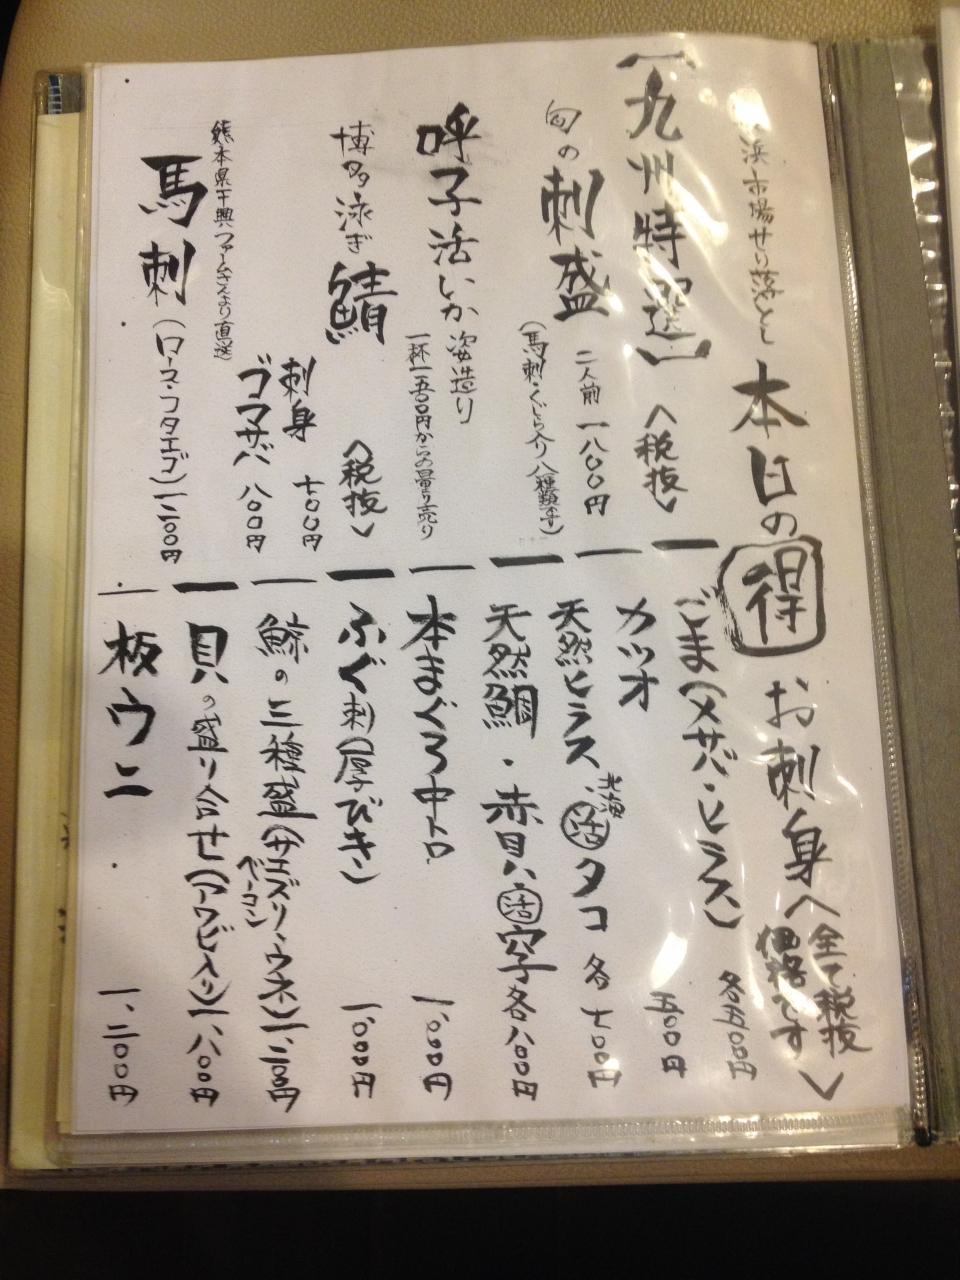 浜市場せり落とし 本日の得お刺身
〈全て税抜
価格です〉
【九州特選】〈税抜〉
旬の刺盛 二人前 一八〇〇円
(馬刺・くじら入り 八種類です)
呼子活いか 姿造り
一杯一五〇〇円からの量り売り
博多泳ぎ鯖 〈税抜〉
刺身 七〇〇円
ゴマサバ 八〇〇円
熊本県千興ファームさんより直送
馬刺(ロース・フタエゴ)一二〇〇円
ごま(〆サバ・ヒラス) 各五〇〇円
カツオ 五〇〇円
天然ヒラス・北海活タコ 各七〇〇円
天然鯛・赤貝・活穴子 各八〇〇円
本まぐろ中トロ 一、〇〇〇円
ふぐ刺(厚びき) 一、〇〇〇円
鯨の三種盛(サエズリ・ウネ・ベーコン)一、二〇〇円
貝の盛り合せ(アワビ入り)一、八〇〇円
板ウニ 一、二〇〇円